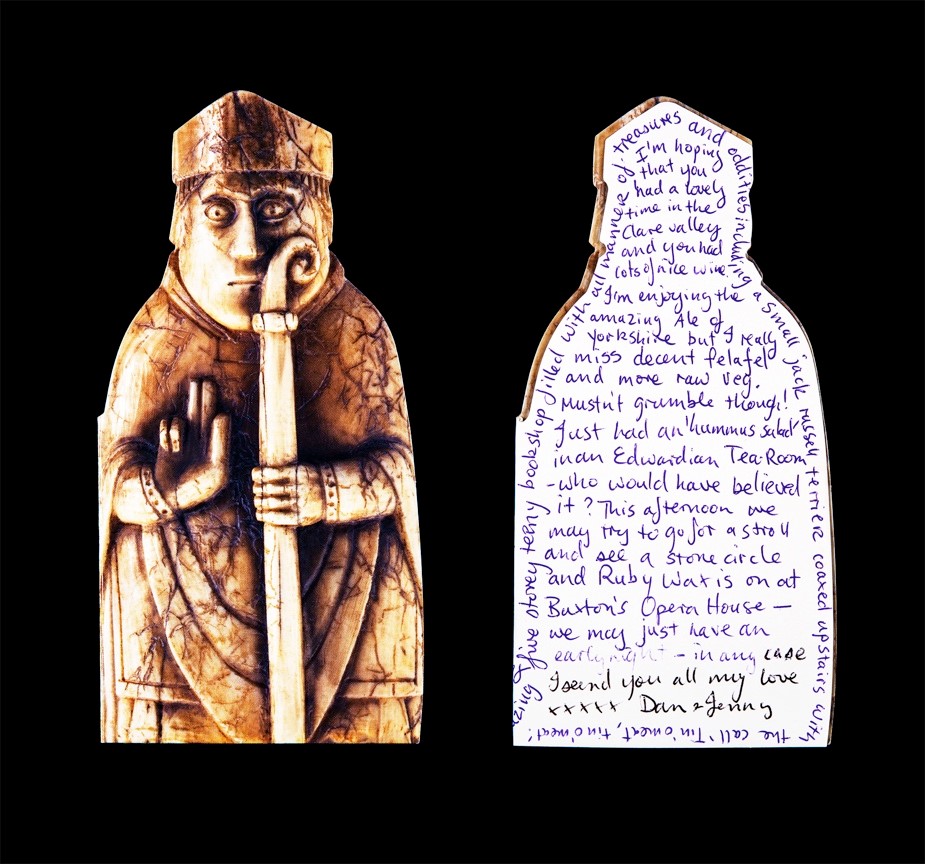 I'm hoping
that you
had a lovely
time in the
Clare valley
and you had
lots of nice wine.
I'm enjoying the
amazing Ale of
Yorkshire but I really
miss decent felafel
and more raw veg.
Mustn't grumble though!
Just had an 'hummus salad'
in an Edwardian Tea-Room
- who would have believed
it? This afternoon we
may try to go for a stroll
and see a stone circle
and Ruby Wax is on at
Buxton's Opera House —
we may just have an
early night - in any case
I send you all my love
xxxxx Dan & Jenny
five storey teeny bookshop filled with all manner of treasures and oddities including a small jack russell terrier coaxed upstairs with
the call 'Tin o'meat, tin o'meat!'